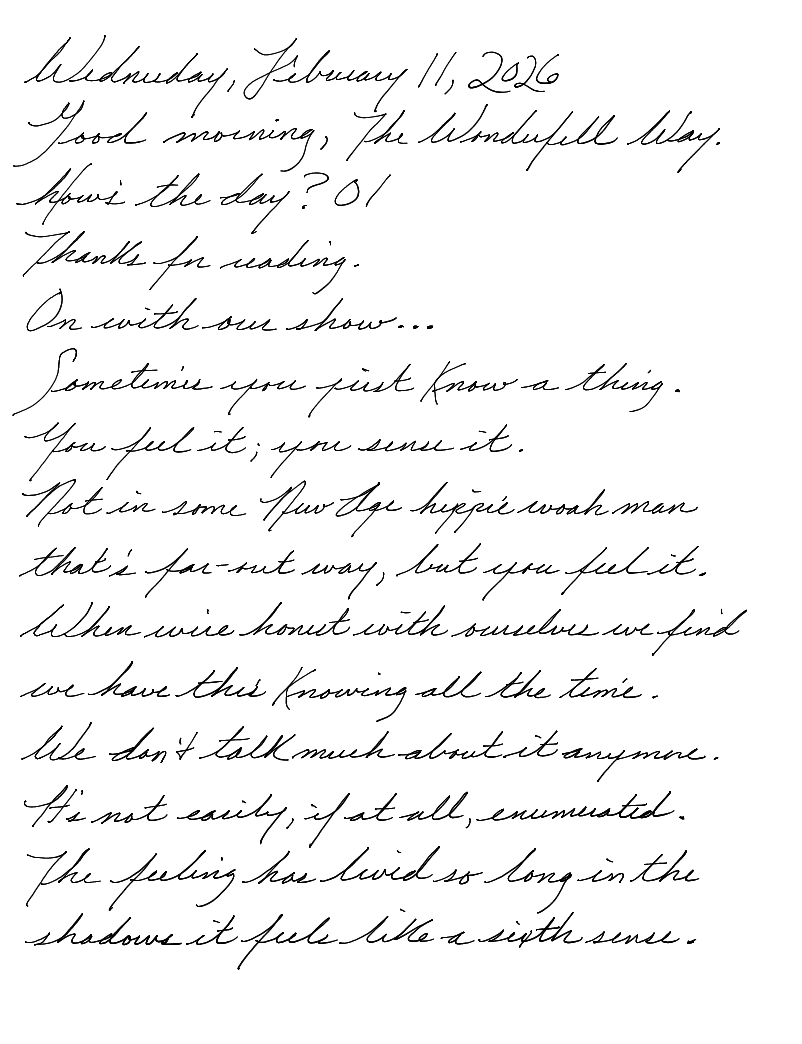 Wednesday, February 11, 2026
Good morning, The Wonderfell Way.
How's the day? 01
Thanks for reading.
On with our show...
Sometimes you just know a thing.
You feel it; you sense it.
Not in some New Age hippie woah man
that's far-out way, but you feel it.
When we're honest with ourselves we find
we have this knowing all the time.
We don't talk much about it anymore.
It's not easily, if at all, enumerated.
The feeling has lived so long in the
shadows it feels like a sixth sense.